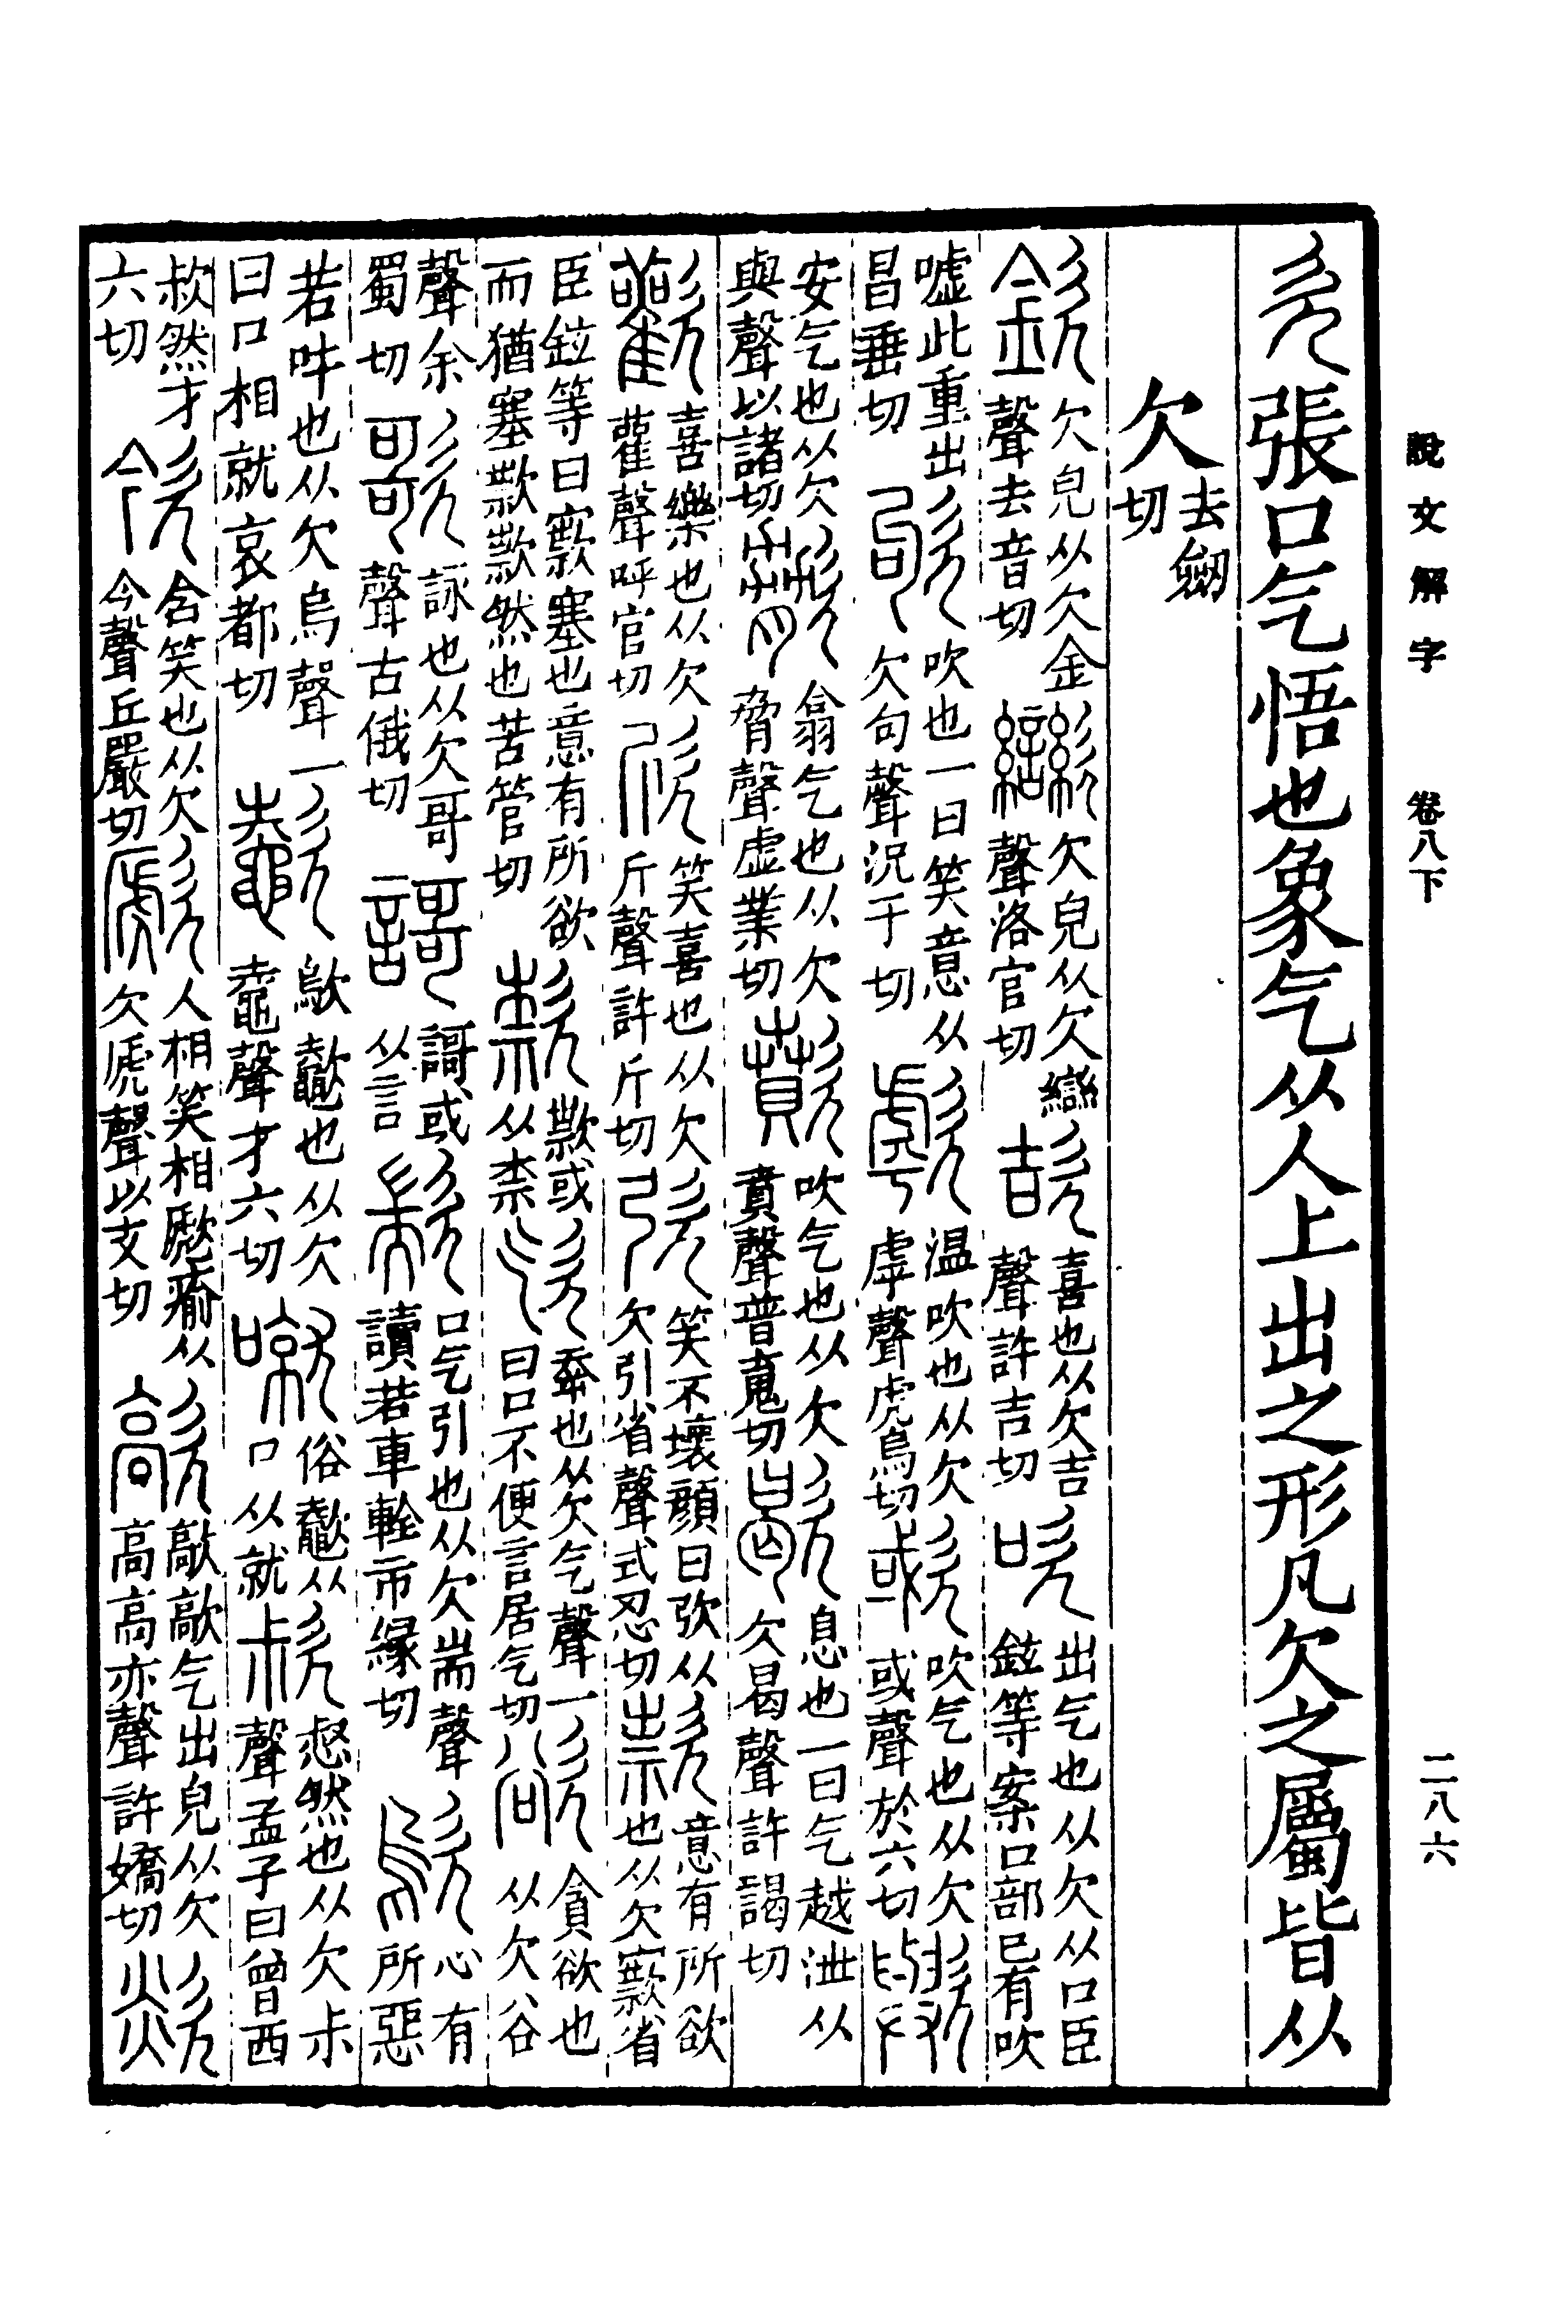 說文解字 卷八下 二八六
欠張口气悟也象气从人上出之形凡欠之屬皆从
欠去劒切
欽欠皃从欠金聲去音切 欠皃从欠䜌聲洛官切欯喜也从欠吉聲許吉切吹出气也从欠从口臣鉉等案口部已有吹
噓此重出昌垂切欨吹也一曰笑意从欠句聲況于切歑温吹也从欠虖聲虎烏切㰲吹气也从欠或聲於六切歟
安气也从欠與聲以諸切 翕气也从欠脅聲虚業切歕吹气也从欠賁聲普䰟切歇息也一曰气越泄从欠曷聲許謁切
歡喜樂也从欠雚聲呼官切欣笑喜也从欠斤聲許斤切弞笑不壞顏曰弞从欠引省聲式忍切款意有所欲也从欠㱁省
臣鉉等曰㱁塞也意有所欲而猶塞款款然也苦管切 款或从柰㰟㚔也从欠气聲一曰口不便言居气切欲貪欲也从欠谷
聲余蜀切歌詠也从欠哥聲古俄切謌謌或从言歂口气引也从欠耑聲讀若車輇市緣切歍心有所惡
若吐也从欠烏聲一曰口相就哀都切𣤶歍𣤶也从欠鼀聲才六切噈俗𣤶从口从就㰗惄然也从欠尗聲孟子曰曾西
㰗然才六切欦含笑也从欠今聲丘嚴切歋人相笑相歋瘉从欠虒聲以支切歊歊歊气出皃从欠高高亦聲許嬌切欻